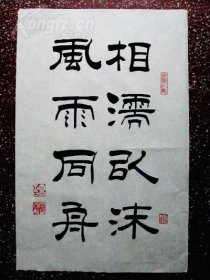 相濡以沫
風雨同舟